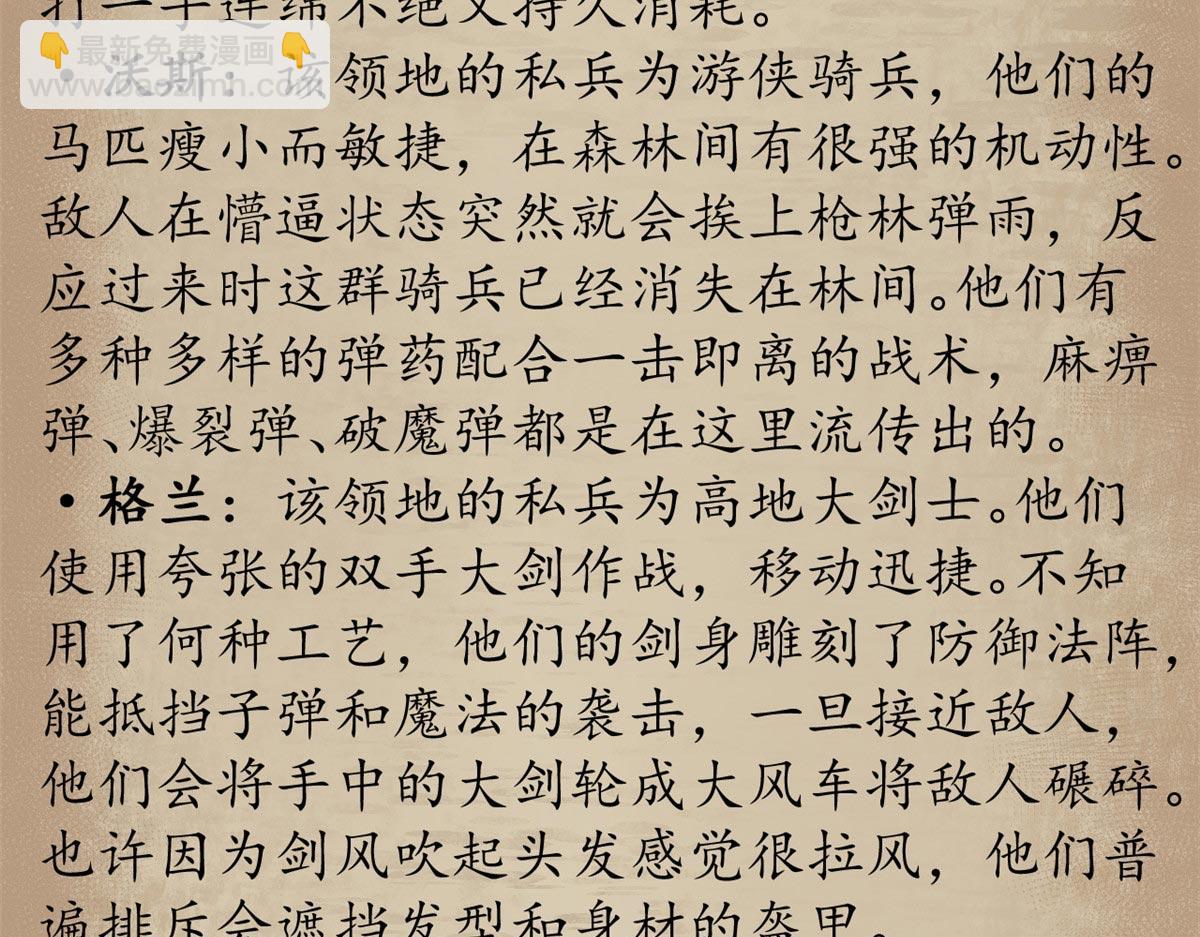 打一手连绵不绝又持久消耗。
👇最新免费漫画👇
www.baozimh.com
•沃斯：该领地的私兵为游侠骑兵，他们的
马匹瘦小而敏捷，在森林间有很强的机动性。
敌人在懵逼状态突然就会挨上枪林弹雨，反
应过来时这群骑兵已经消失在林间。他们有
多种多样的弹药配合一击即离的战术，麻痹
弹、爆裂弹、破魔弹都是在这里流传出的。
•格兰：该领地的私兵为高地大剑士。他们
使用夸张的双手大剑作战，移动迅捷。不知
用了何种工艺，他们的剑身雕刻了防御法阵，
能抵挡子弹和魔法的袭击，一旦接近敌人，
他们会将手中的大剑轮成大风车将敌人碾碎。
也许因为剑风吹起头发感觉很拉风，他们普
遍排斥会遮挡发型和身材的盔甲。